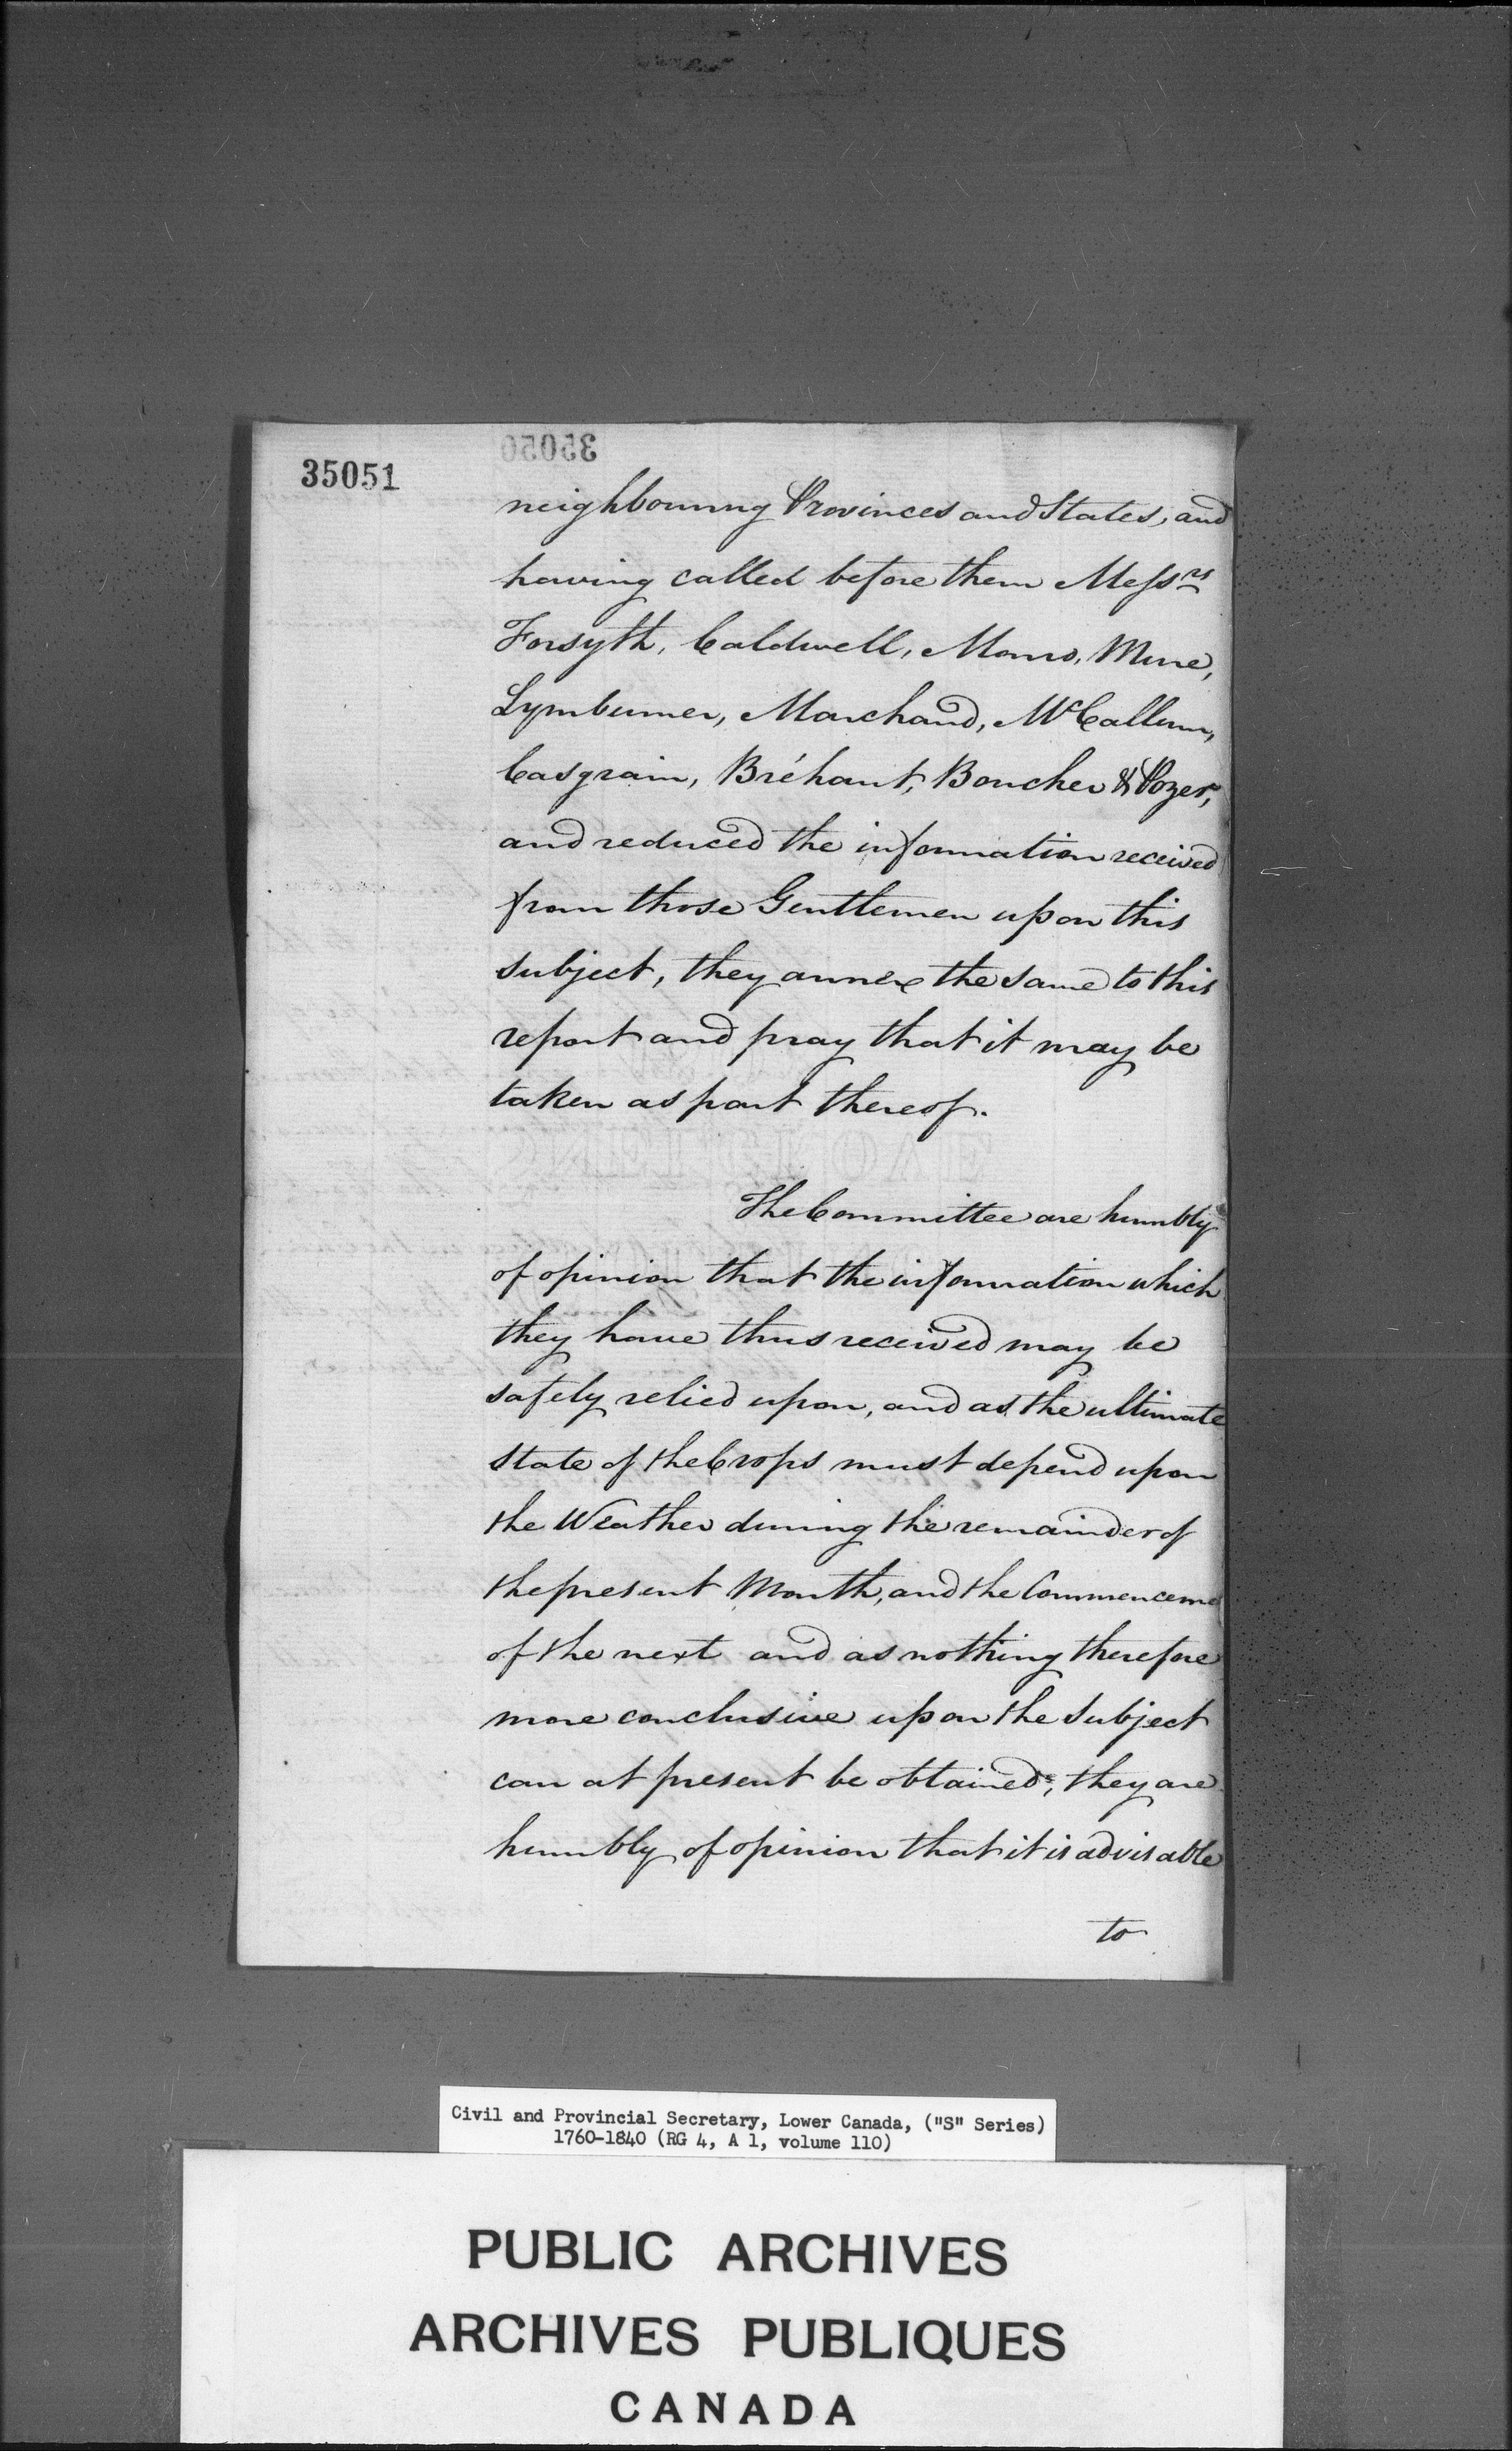 35051
neighbouring Provinces and States, and
having called before them Messrs
Forsyth, Caldwell, Monro, Mure,
Lymburner, Marchand, McCallum,
Casgrain, Bréhaut, Boucher & Pozer,
and reduced the information received
from those Gentlemen upon this
subject, they annex the same to this
report and pray that it may be
taken as part thereof.
The Committee are humbly
of opinion that the information which
they have thus received may be
safely relied upon, and as the ultimate
state of the Crops must depend upon
the Weather during the remainder of
the present Month, and the Commenceme
of the next and as nothing therefore
more conclusive upon the Subject
can at present be obtained, they are
humbly of opinion that it is advisable
to
Civil and Provincial Secretary, Lower Canada, ("S" Series)
1760-1840 (RG 4, A 1, volume 110)
PUBLIC ARCHIVES
ARCHIVES PUBLIQUES
CANADA